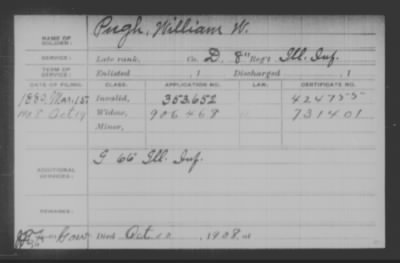 NAME OF SOLDIER: Pugh, William W.
SERVICE: Late rank, Co. D, 8" Reg't Ill. Inf.
TERM OF SERVICE: Enlisted , 1 Discharged , 1
DATE OF FILING. CLASS. APPLICATION NO. LAW. CERTIFICATE NO.
1882, Mar. 15. Invalid, 353.652
1908 Oct 19 Widow, 906468 731401
Minor,
ADDITIONAL SERVICES: G 66 Ill. Inf.
REMARKS:
Died Oct , 1908 at